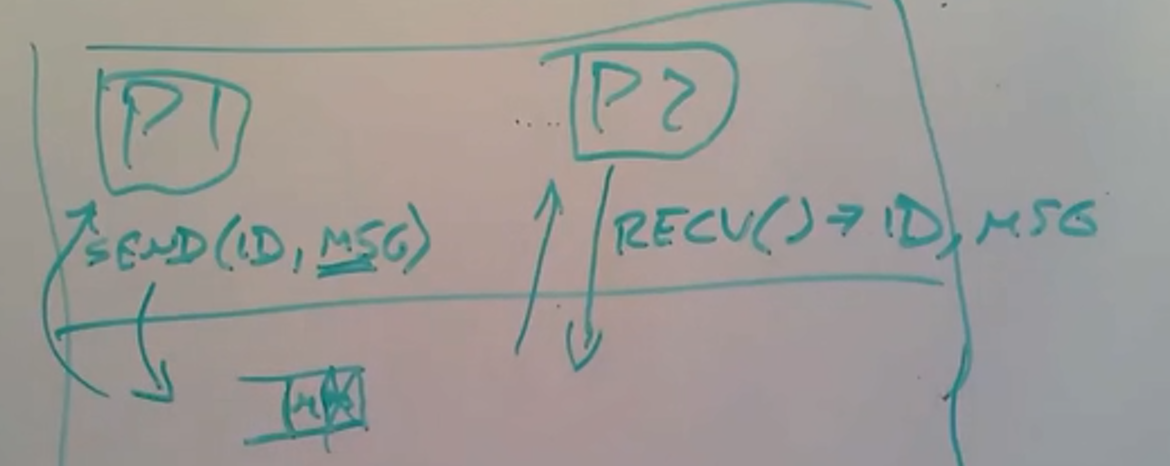 P1
P2
SEND(ID, MSG)
RECV() → ID, MSG